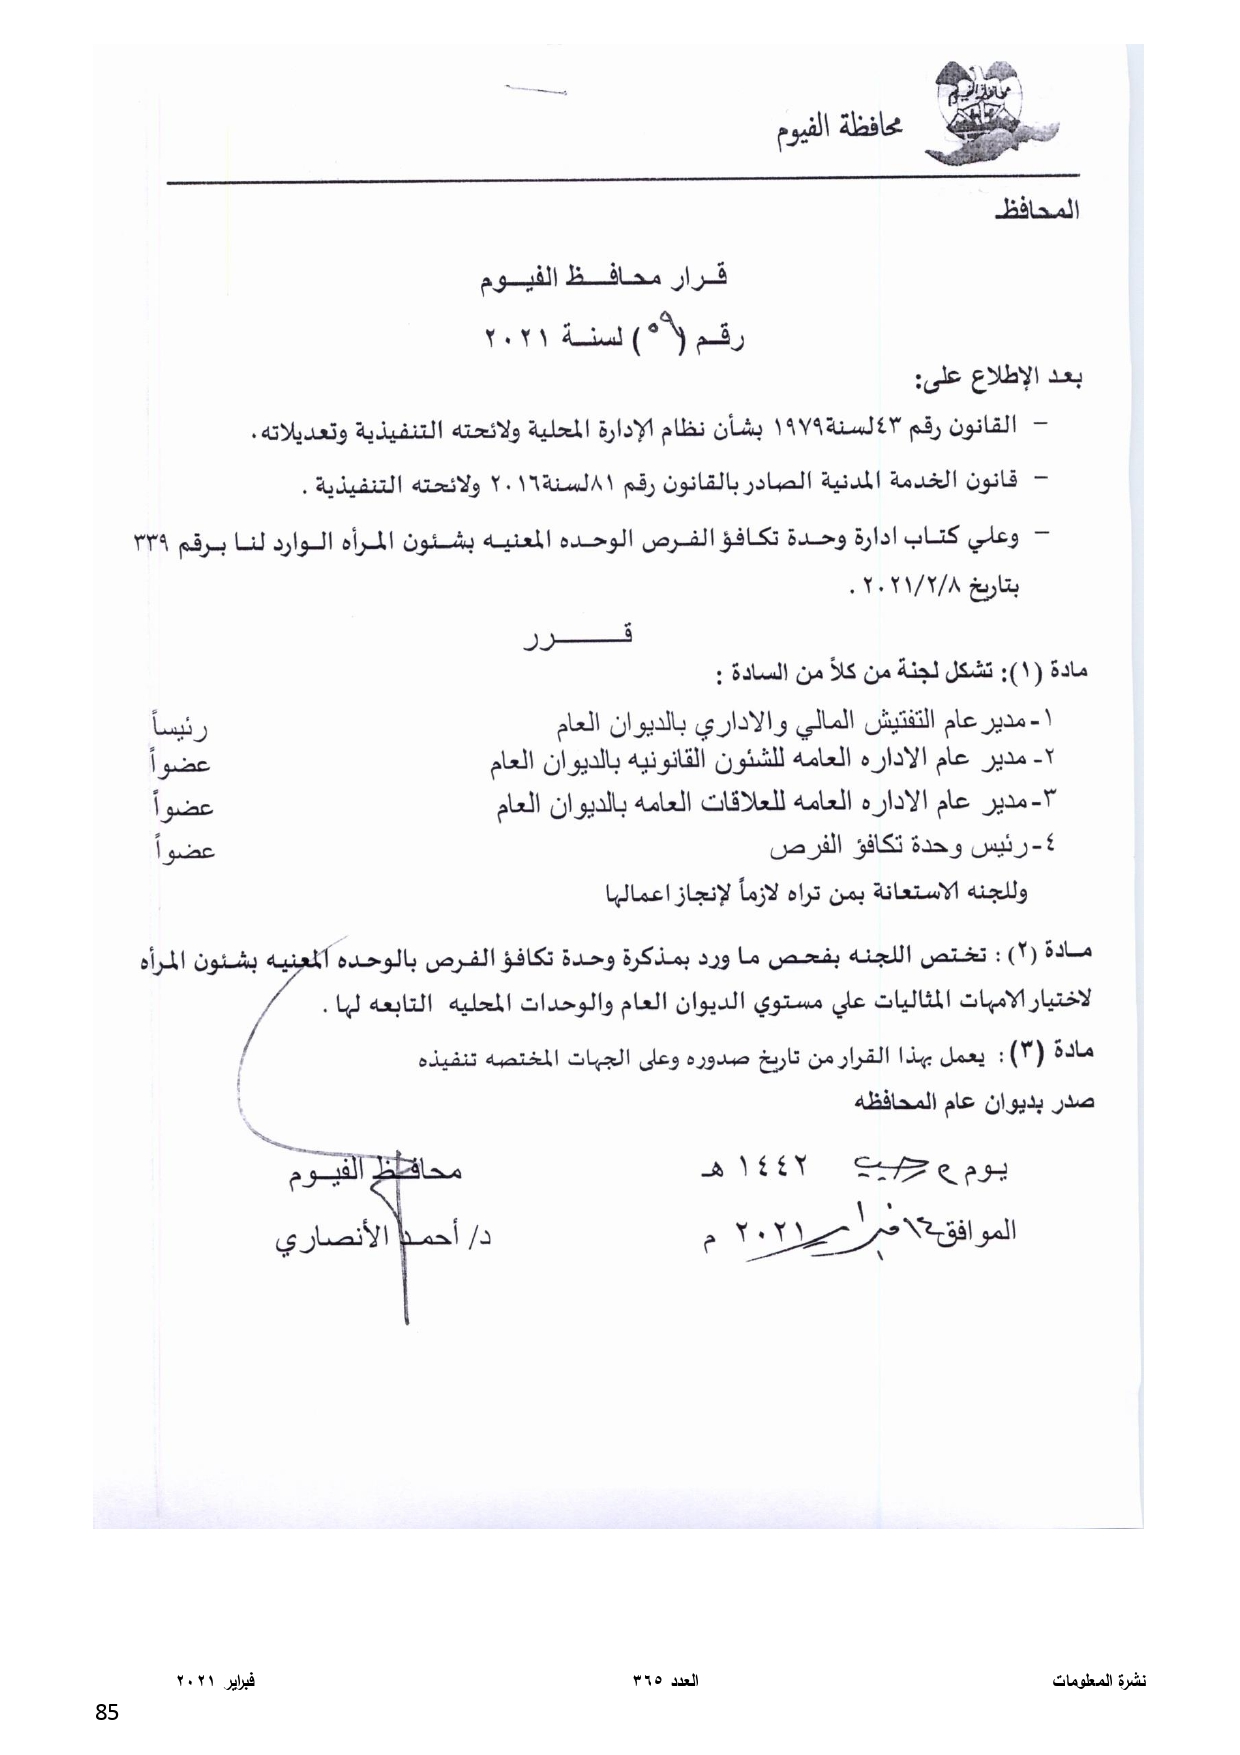 محافظة الفيوم
محافظة الفيوم
المحافظ
قرار محافظ الفيوم
رقم (٥٩) لسنة ٢٠٢١
بعد الإطلاع على:
– القانون رقم ٤٣لسنة١٩٧٩ بشأن نظام الإدارة المحلية ولائحته التنفيذية وتعديلاته.
– قانون الخدمة المدنية الصادر بالقانون رقم ٨١لسنة٢٠١٦ ولائحته التنفيذية .
– وعلي كتاب ادارة وحدة تكافؤ الفرص الوحده المعنيه بشئون المرأه الوارد لنا برقم ٣٣٩
بتاريخ ٢٠٢١/٢/٨ .
قـــــرر
مادة (١): تشكل لجنة من كلاً من السادة :
١- مدير عام التفتيش المالي والاداري بالديوان العام رئيساً
٢- مدير عام الاداره العامه للشئون القانونيه بالديوان العام عضواً
٣- مدير عام الاداره العامه للعلاقات العامه بالديوان العام عضواً
٤- رئيس وحدة تكافؤ الفرص عضواً
وللجنه الاستعانة بمن تراه لازماً لإنجاز اعمالها
مادة (٢) : تختص اللجنه بفحص ما ورد بمذكرة وحدة تكافؤ الفرص بالوحده المعنيه بشئون المرأه
لاختيار الامهات المثاليات علي مستوي الديوان العام والوحدات المحليه التابعه لها .
مادة (٣) : يعمل بهذا القرار من تاريخ صدوره وعلى الجهات المختصه تنفيذه
صدر بديوان عام المحافظه
يوم رجب ١٤٤٢ هـ
محافظ الفيوم
الموافق ١٤ فبراير ٢٠٢١ م
د/ أحمد الأنصاري
نشرة المعلومات العدد ٣٦٥ فبراير ٢٠٢١
85